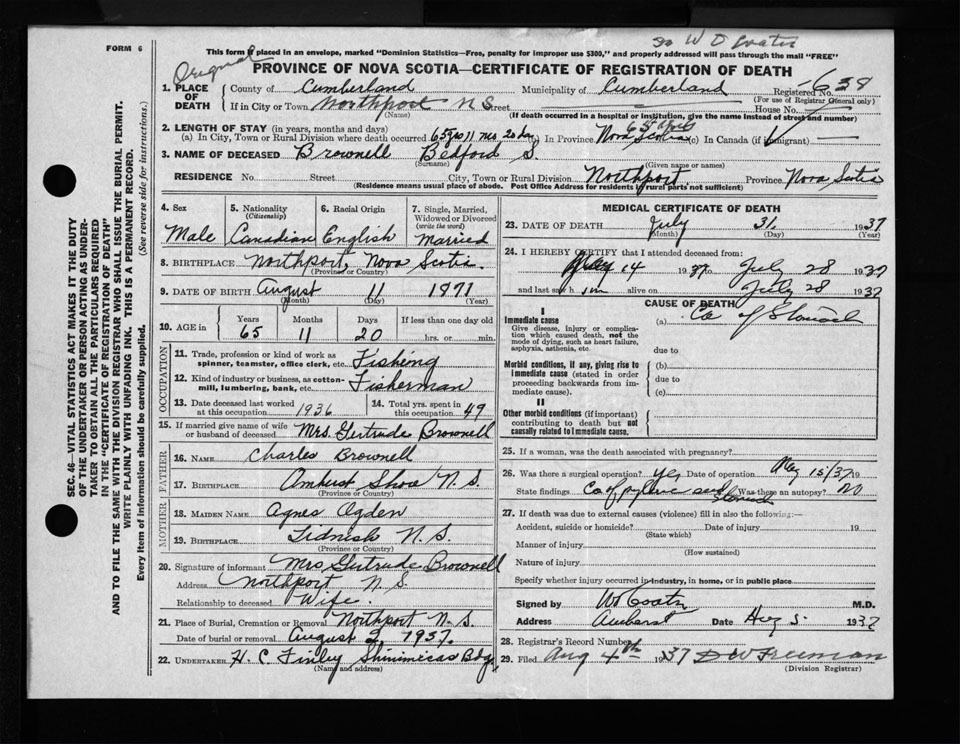 FORM 6
So W D Coates
This form if placed in an envelope, marked "Dominion Statistics—Free, penalty for improper use $300," and properly addressed will pass through the mail "FREE"
Original
PROVINCE OF NOVA SCOTIA—CERTIFICATE OF REGISTRATION OF DEATH
638
1. PLACE OF DEATH County of Cumberland Municipality of Cumberland Registered No.
(For use of Registrar General only)
If in City or Town Northport N S Street House No.
(Name) (If death occurred in a hospital or institution, give the name instead of street and number)
2. LENGTH OF STAY (in years, months and days)
(a) In City, Town or Rural Division where death occurred 65 yrs 11 mos 20 da (b) In Province Nova Scotia (c) In Canada (if immigrant)
3. NAME OF DECEASED Brownell Bedford S.
(Surname) (Given name or names)
RESIDENCE No. Street City, Town or Rural Division Northport Province Nova Scotia
(Residence means usual place of abode. Post Office Address for residents in rural parts not sufficient)
4. Sex Male
5. Nationality (Citizenship) Canadian
6. Racial Origin English
7. Single, Married, Widowed or Divorced (write the word) Married
8. BIRTHPLACE Northport Nova Scotia.
(Province or Country)
9. DATE OF BIRTH August 11 1871
(Month) (Day) (Year)
10. AGE in Years Months Days If less than one day old
65 11 20 hrs. or min.
OCCUPATION
11. Trade, profession or kind of work as spinner, teamster, office clerk, etc. Fishing
12. Kind of industry or business, as cotton-mill, lumbering, bank, etc. Fisherman
13. Date deceased last worked at this occupation 1936
14. Total yrs. spent in this occupation 49
15. If married give name of wife or husband of deceased Mrs. Gertrude Brownell
FATHER
16. NAME Charles Brownell
17. BIRTHPLACE Amherst Shore N. S.
(Province or Country)
MOTHER
18. MAIDEN NAME Agnes Ogden
19. BIRTHPLACE Tidnish N. S.
(Province or Country)
20. Signature of informant Mrs Gertrude Brownell
Address Northport N. S.
Relationship to deceased Wife
21. Place of Burial, Cremation or Removal Northport N. S.
Date of burial or removal August 2 1937.
22. UNDERTAKER H. C. Finley Shinimicas Bdg
(Name and address)
MEDICAL CERTIFICATE OF DEATH
23. DATE OF DEATH July 31, 1937
(Month) (Day) (Year)
24. I HEREBY CERTIFY that I attended deceased from:
May 14 1937 to July 28 1937
and last saw him alive on July 28 1937
CAUSE OF DEATH
I
Immediate cause (a) Ca of Stomach
Give disease, injury or complication which caused death, not the mode of dying, such as heart failure, asphyxia, asthenia, etc.
due to
Morbid conditions, if any, giving rise to immediate cause (stated in order proceeding backwards from immediate cause).
(b)
due to
(c)
II
Other morbid conditions (if important) contributing to death but not causally related to immediate cause.
25. If a woman, was the death associated with pregnancy?
26. Was there a surgical operation? yes Date of operation May 15/37 19
State findings Ca of pyloric end stomach Was there an autopsy? NO
27. If death was due to external causes (violence) fill in also the following:—
Accident, suicide or homicide? Date of injury 19
(State which)
Manner of injury
(How sustained)
Nature of injury
Specify whether injury occurred in industry, in home, or in public place
Signed by W D Coates M.D.
Address Amherst Date Aug 5. 1937
28. Registrar's Record Number
29. Filed Aug 4th 1937 D W Freeman
(Division Registrar)
SEC. 46—VITAL STATISTICS ACT MAKES IT THE DUTY
OF THE UNDERTAKER OR PERSON ACTING AS UNDER-
TAKER TO OBTAIN ALL THE PARTICULARS REQUIRED
IN THE "CERTIFICATE OF REGISTRATION OF DEATH"
AND TO FILE THE SAME WITH THE DIVISION REGISTRAR WHO SHALL ISSUE THE BURIAL PERMIT.
WRITE PLAINLY WITH UNFADING INK. THIS IS A PERMANENT RECORD.
Every item of information should be carefully supplied. (See reverse side for instructions.)